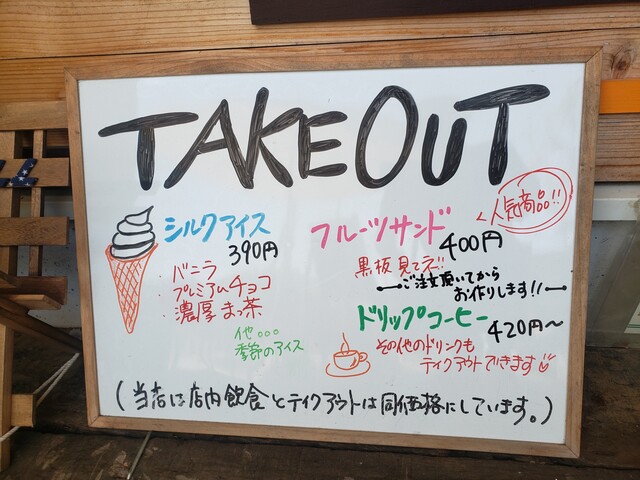 TAKEOUT
シルクアイス
390円
・バニラ
・プレミアムチョコ
・濃厚まっ茶
他。。。
季節のアイス
フルーツサンド
人気商品!!
400円
黒板見てネ!!
ご注文頂いてから
お作りします!!
ドリップコーヒー
420円〜
その他のドリンクも
テイクアウトできます
(当店は店内飲食とテイクアウトは同価格にしています。)